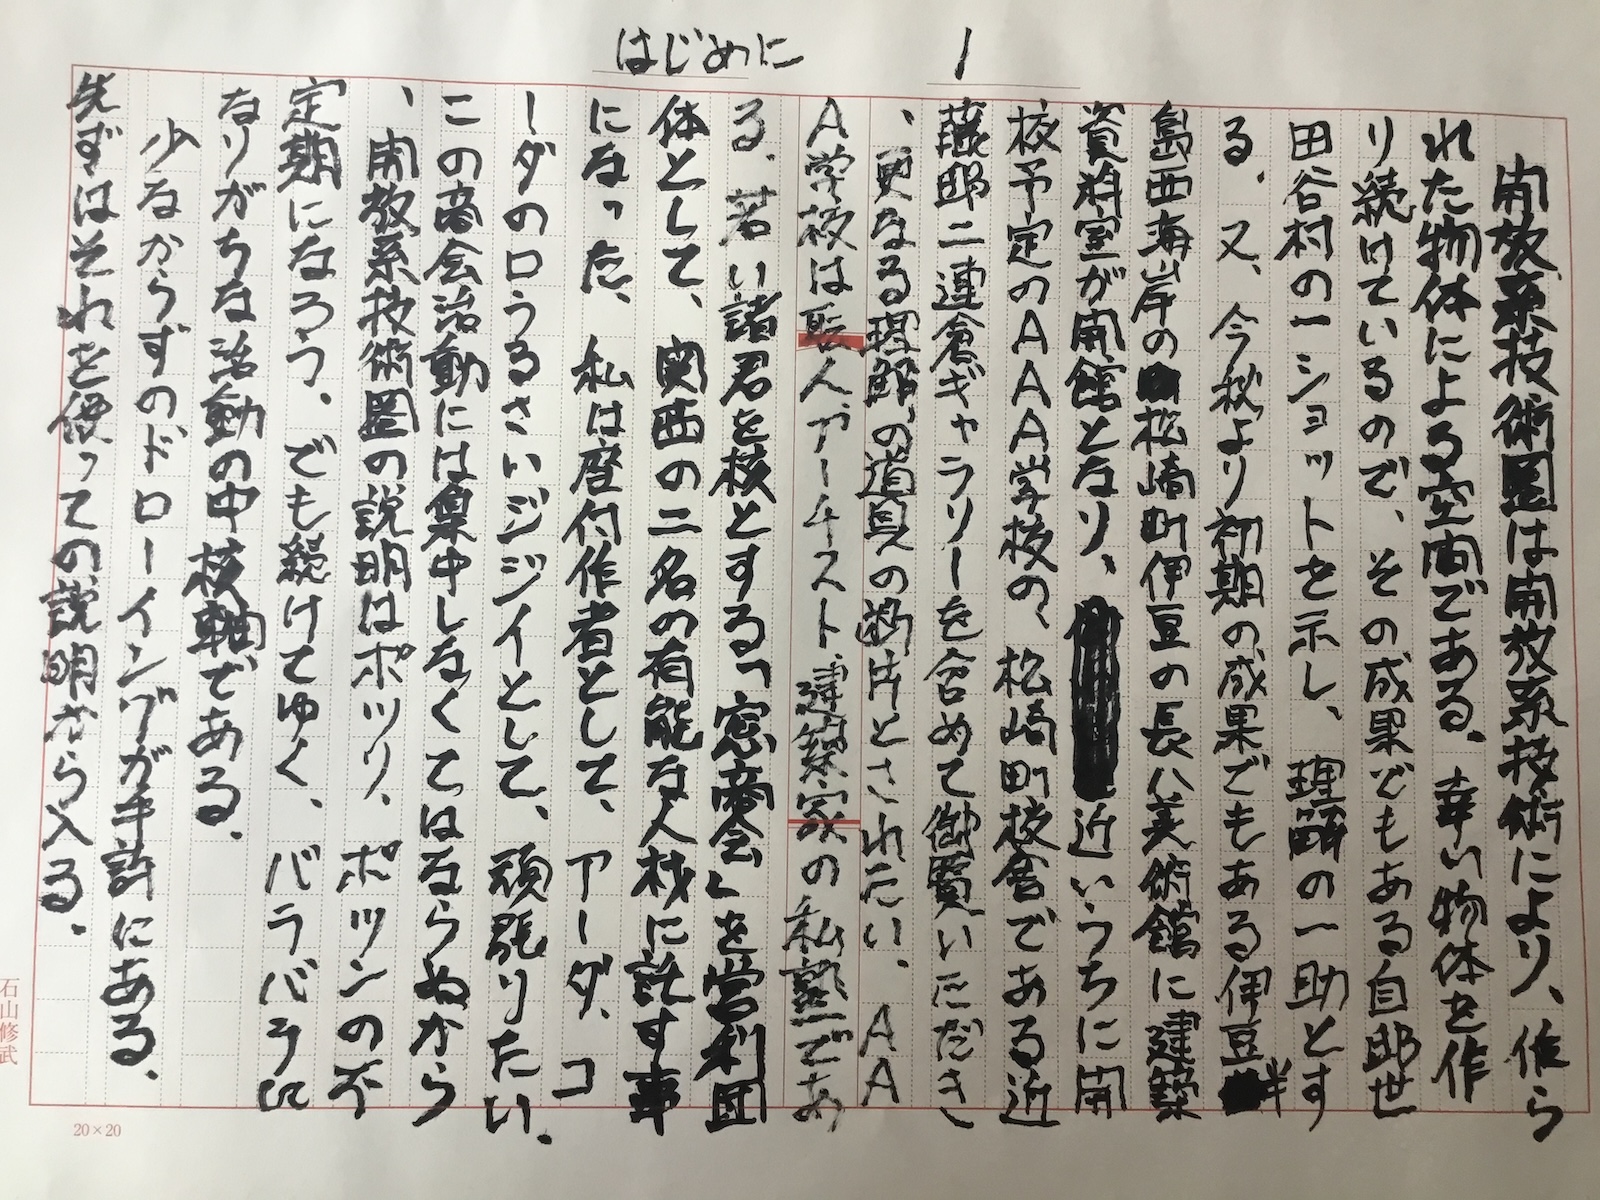 はじめに 1
開放系技術圏は開放系技術により、作ら
れた物体による空間である。幸い物体を作
り続けているので、その成果でもある自邸世
田谷村の一ショットを示し、理解の一助とす
る。又、今秋より初期の成果でもある伊豆半
島西海岸の松崎町伊豆の長八美術館に建築
資料室が開館となり、近いうちに開
校予定のAAA学校の、松崎町校舎である近
藤邸二連倉ギャラリーを含めて御覧いただき
、更なる理解の道具の断片とされたい。AA
A学校は職人アーチスト、建築家の私塾であ
る。若い諸君を核とする「窓商会」を営利団
体として、関西の二名の有能な人材に託す事
になった。私は座付作者として、アーダ、コ
ーダの口うるさいジジイとして、頑張りたい。
この商会活動には集中しなくてはならぬから
、開放系技術圏の説明はポツリ、ポツンの不
定期になろう。でも続けてゆく、バラバラに
なりがちな活動の中核軸である。
少なからずのドローイングが手許にある。
先ずはそれを使っての説明から入る。
石山修武
20×20